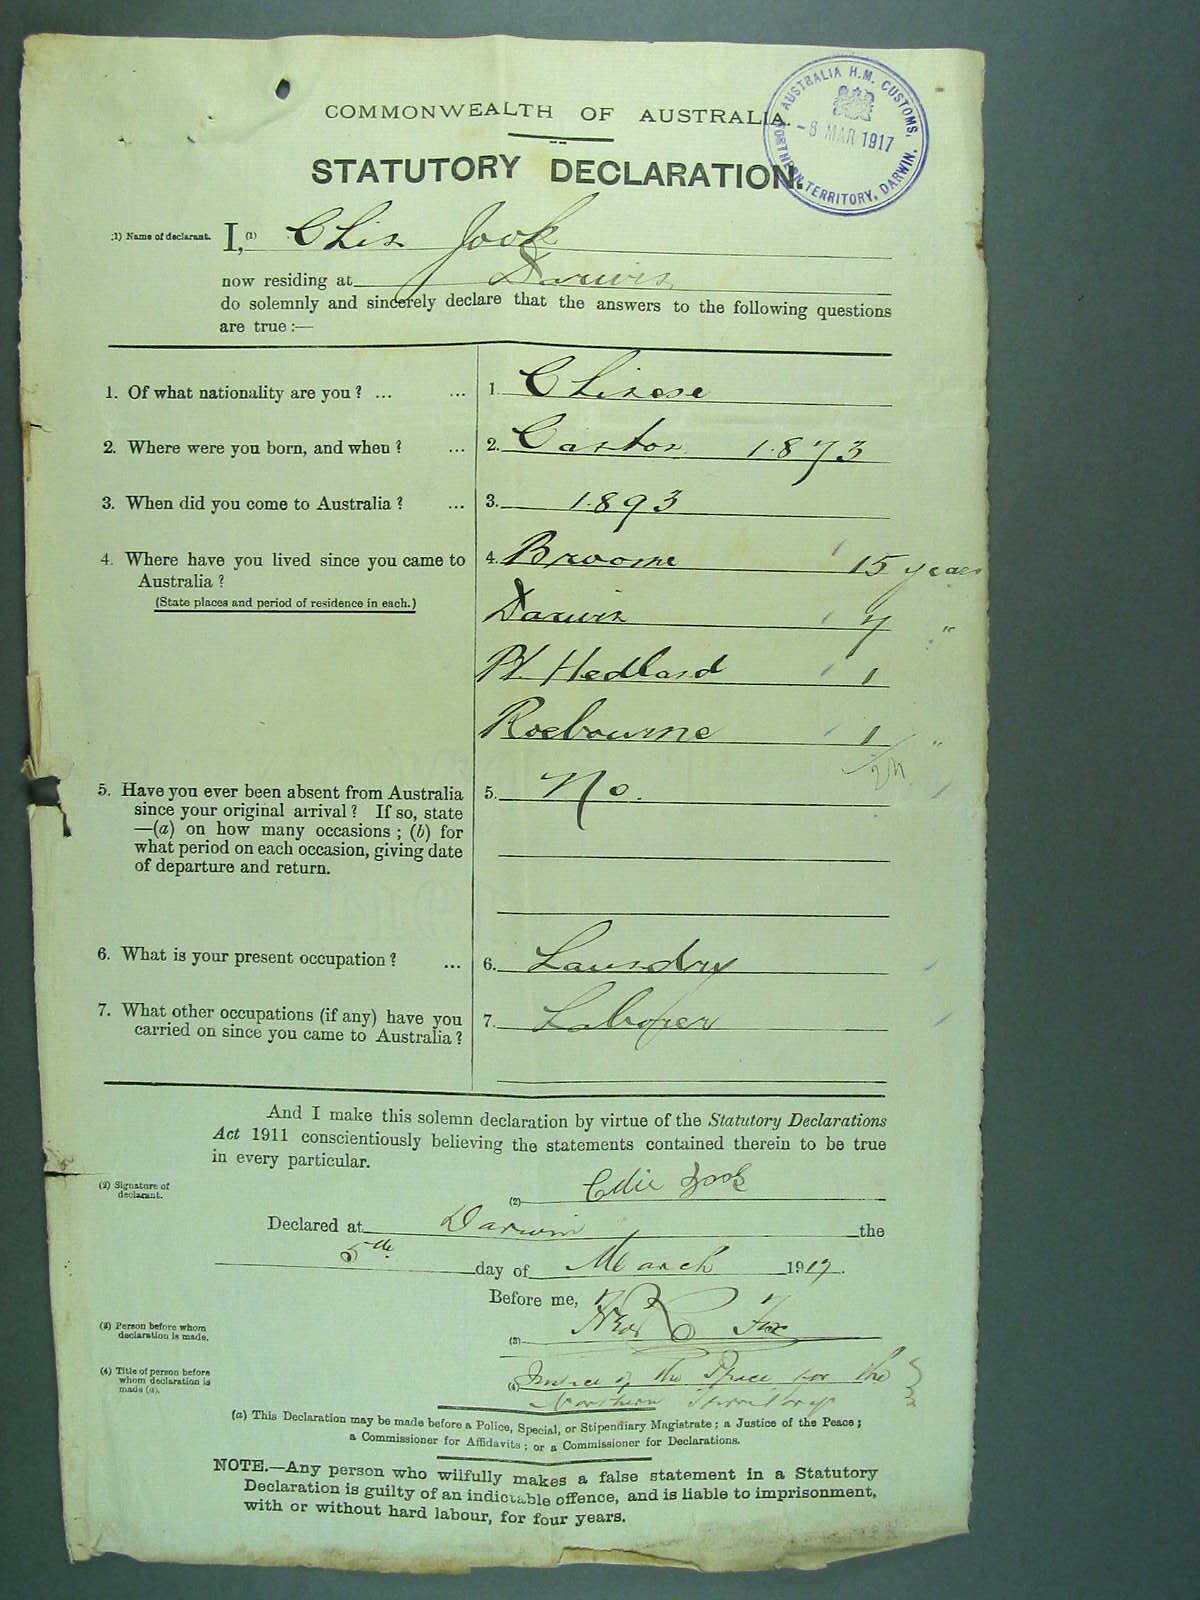 COMMONWEALTH OF AUSTRALIA.
AUSTRALIA H.M. CUSTOMS, NORTHERN TERRITORY, DARWIN.
-8 MAR 1917
STATUTORY DECLARATION.
(1) Name of declarant. I, (1) Chin Jook
now residing at Darwin
do solemnly and sincerely declare that the answers to the following questions
are true :—
1. Of what nationality are you ? ... ... 1. Chinese
2. Where were you born, and when ? ... 2. Canton 1873
3. When did you come to Australia ? ... 3. 1893
4. Where have you lived since you came to 4. Broome 15 years
Australia ?
(State places and period of residence in each.)
Darwin 7 "
Pt. Hedland 1
Roebourne 1 "
24
5. Have you ever been absent from Australia 5. No.
since your original arrival ? If so, state
—(a) on how many occasions ; (b) for
what period on each occasion, giving date
of departure and return.
6. What is your present occupation ? ... 6. Laundry
7. What other occupations (if any) have you 7. Laborer
carried on since you came to Australia ?
And I make this solemn declaration by virtue of the Statutory Declarations
Act 1911 conscientiously believing the statements contained therein to be true
in every particular.
(2) Signature of
declarant.
(2) Jook
Declared at Darwin the
5th day of March 1917.
Before me,
(3) Person before whom
declaration is made.
(3) Fox
(4) Title of person before
whom declaration is
made (a).
(4) Justice of the Peace for the
Northern Territory
(a) This Declaration may be made before a Police, Special, or Stipendiary Magistrate ; a Justice of the Peace ;
a Commissioner for Affidavits ; or a Commissioner for Declarations.
NOTE.—Any person who wilfully makes a false statement in a Statutory
Declaration is guilty of an indictable offence, and is liable to imprisonment,
with or without hard labour, for four years.